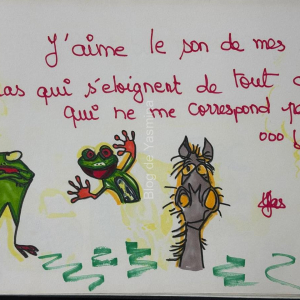 J'aime le son de mes
pas qui s'eloignent de tout c
qui ne me correspond pa
ooo
Blog de Yasmina